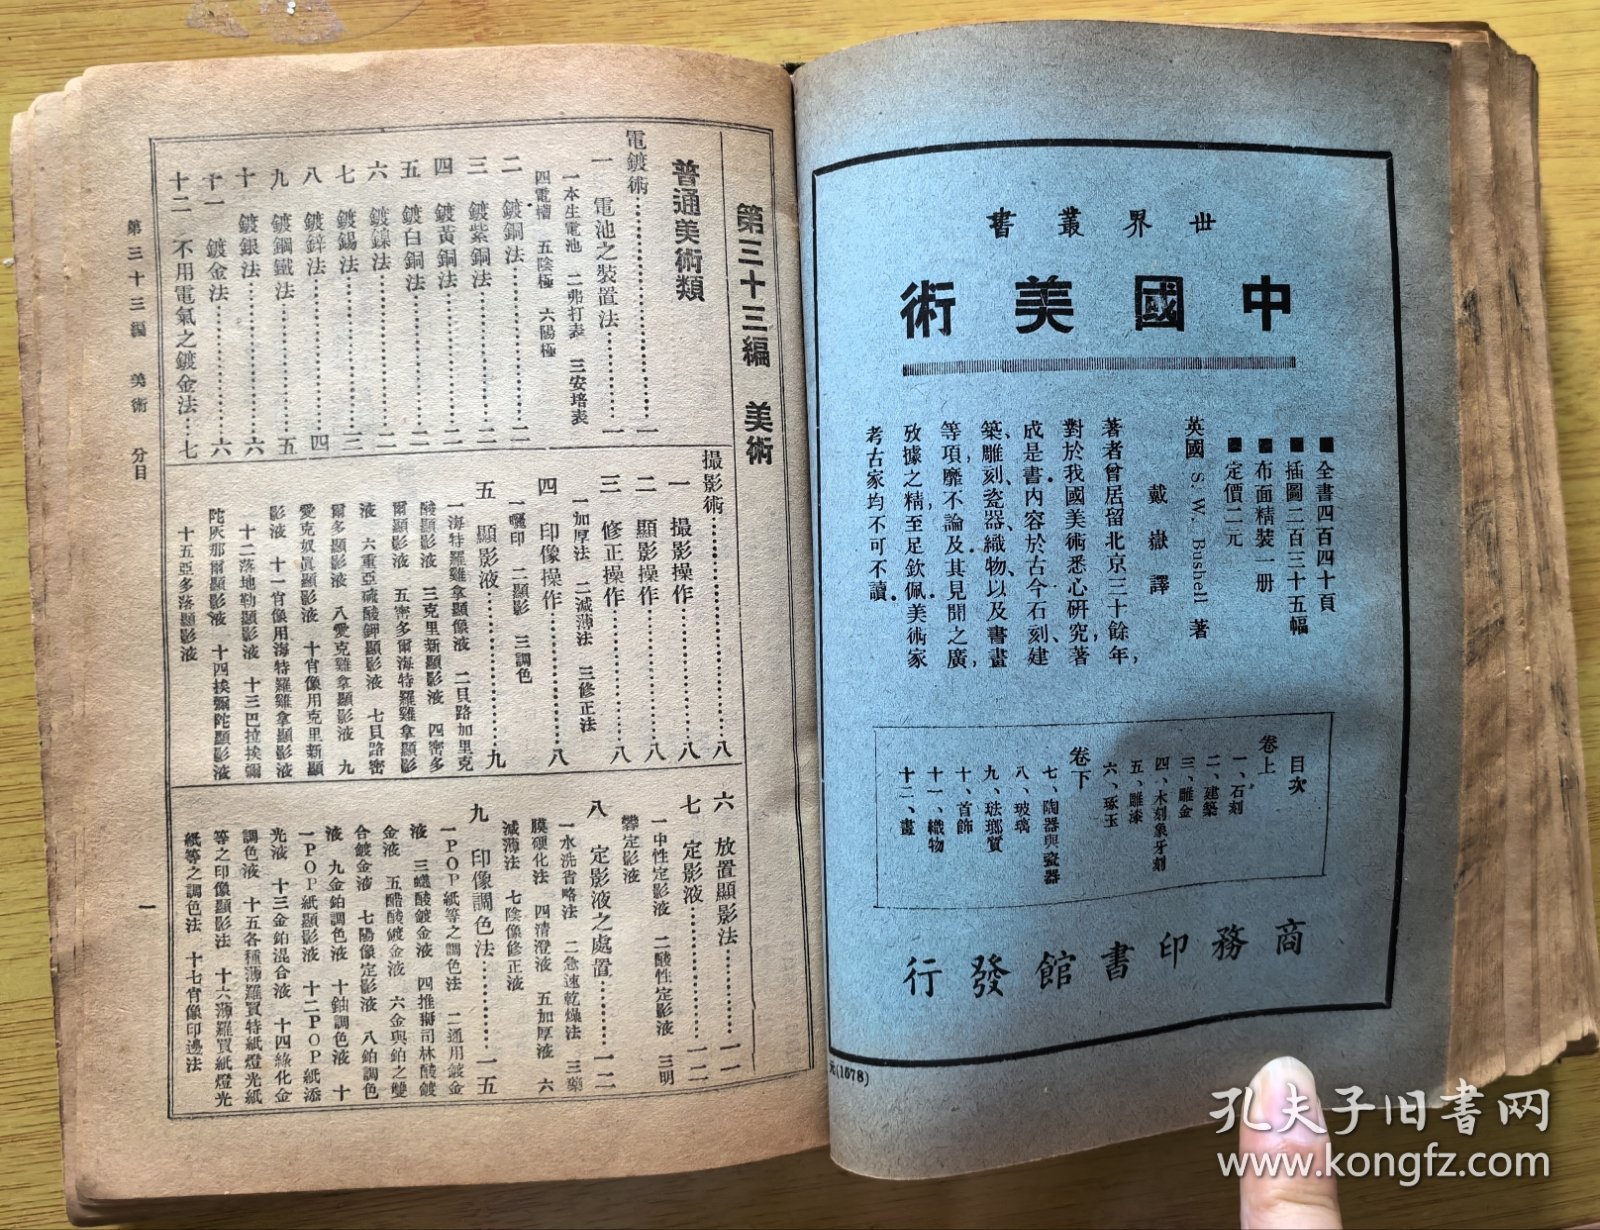 世界叢書
中國美術
■全書四百四十頁
■插圖二百三十五幅
■布面精裝一册
■定價二元
英國 S. W. Bushell 著
戴嶽譯
著者曾居留北京三十餘年,
對於我國美術悉心研究,著
成是書內容於古今石刻、建
築、雕刻、瓷器、織物、以及書畫
等項,靡不論及其見聞之廣,
攷據之精,至足欽佩美術家
考古家均不可不讀.
目次
卷上
一、石刻
二、建築
三、雕金
四、木刻象牙刻
五、雕漆
六、琢玉
卷下
七、陶器與瓷器
八、玻璃
九、琺瑯質
十、首飾
十一、織物
十二、畫
商務印書館發行
元(1578)
第三十三編 美術
普通美術類
電鍍術……一
一 電池之裝置法……一
一本生電池 二弗打表 三安培表
四電槽 五陰極 六陽極
二 鍍銅法……二
三 鍍紫銅法……二
四 鍍黃銅法……二
五 鍍白銅法……二
六 鍍鎳法……二
七 鍍錫法……三
八 鍍鋅法……四
九 鍍鋼鐵法……五
十 鍍銀法……六
十一 鍍金法……六
十二 不用電氣之鍍金法……七
撮影術……八
一 撮影操作……八
二 顯影操作……八
三 修正操作……八
一加厚法 二減薄法 三修正法
四 印像操作……八
一曬印 二顯影 三調色
五 顯影液……九
一海特羅雞拿顯像液 二貝路加里克
酸顯影液 三克里新顯影液 四密多
爾顯影液 五密多爾海特羅雞拿顯影
液 六重亞硫酸鉀顯影液 七貝路密
爾多顯影液 八愛克雞拿顯影液 九
愛克奴眞顯影液 十肖像用克里新顯
影液 十一肖像用海特羅雞拿顯影液
十二落地勒顯影液 十三巴拉挨彌
陀灰那爾顯影液 十四挨彌陀顯影液
十五亞多落顯影液
六 放置顯影法……一一
七 定影液……一二
一中性定影液 二酸性定影液 三明
礬定影液
八 定影液之處置……一二
一水洗省略法 二急速乾燥法 三藥
膜硬化法 四清澄液 五加厚液 六
減薄法 七陰像修正液
九 印像調色法……一五
一POP紙等之調色法 二通用鍍金
液 三蟻酸鍍金液 四推獅司林酸鍍
金液 五醋酸鍍金液 六金與鉑之雙
合鍍金液 七陽像定影液 八鉑調色
液 九金鉑調色液 十鈾調色液 十
一POP紙顯影液 十二POP紙添
光液 十三金鉑混合液 十四綠化金
調色液 十五各種薄羅買特紙燈光紙
等之印像顯影法 十六薄羅買紙燈光
紙等之調色法 十七肖像印邊法
第三十三編 美術 分目
一
孔夫子旧书网
www.kongfz.com